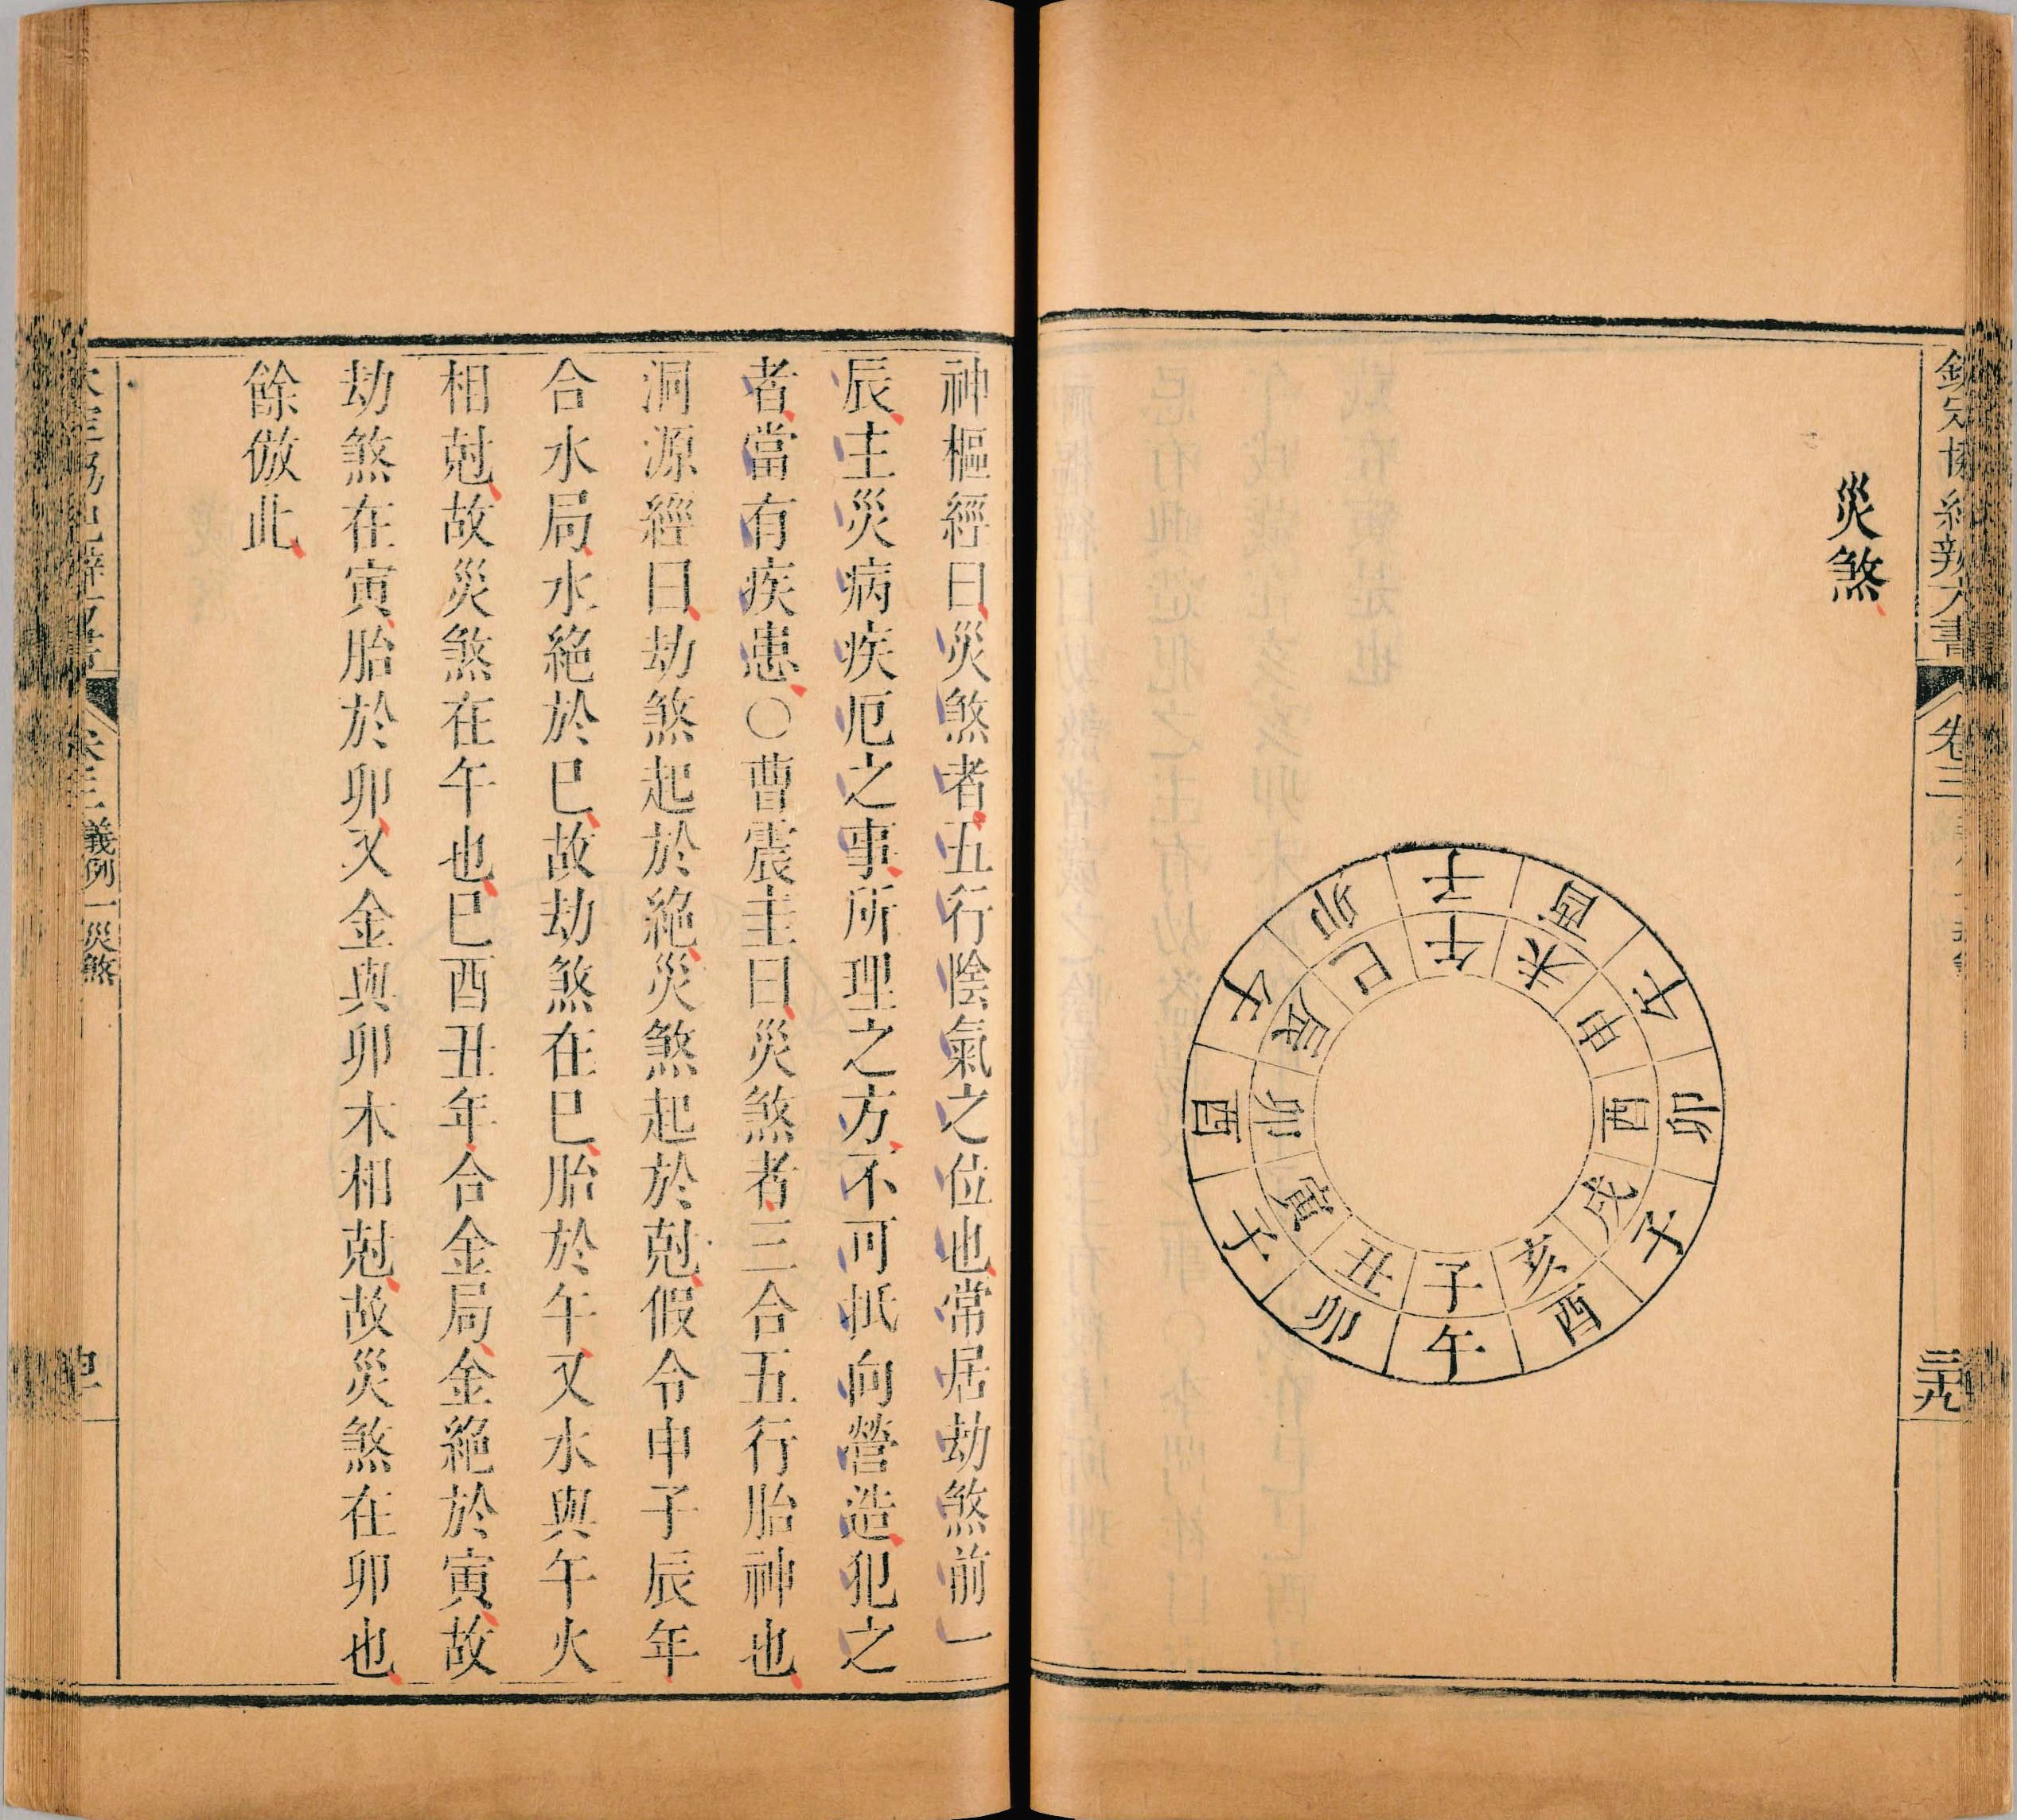 欽定協紀辨方書
卷三
三十九
災煞
子
酉
午
卯
子
酉
午
卯
子
酉
午
卯
午
未
申
酉
戌
亥
子
丑
寅
卯
辰
巳
神樞經曰災煞者五行陰氣之位也常居劫煞前一
辰主災病疾厄之事所理之方不可抵向營造犯之
者當有疾患○曹震圭曰災煞者三合五行胎神也
洞源經曰劫煞起於絶災煞起於尅假令申子辰年
合水局水絶於巳故劫煞在巳胎於午又水與午火
相尅故災煞在午也巳酉丑年合金局金絶於寅故
劫煞在寅胎於卯又金與卯木相尅故災煞在卯也
餘倣此
卷三
義例一災煞